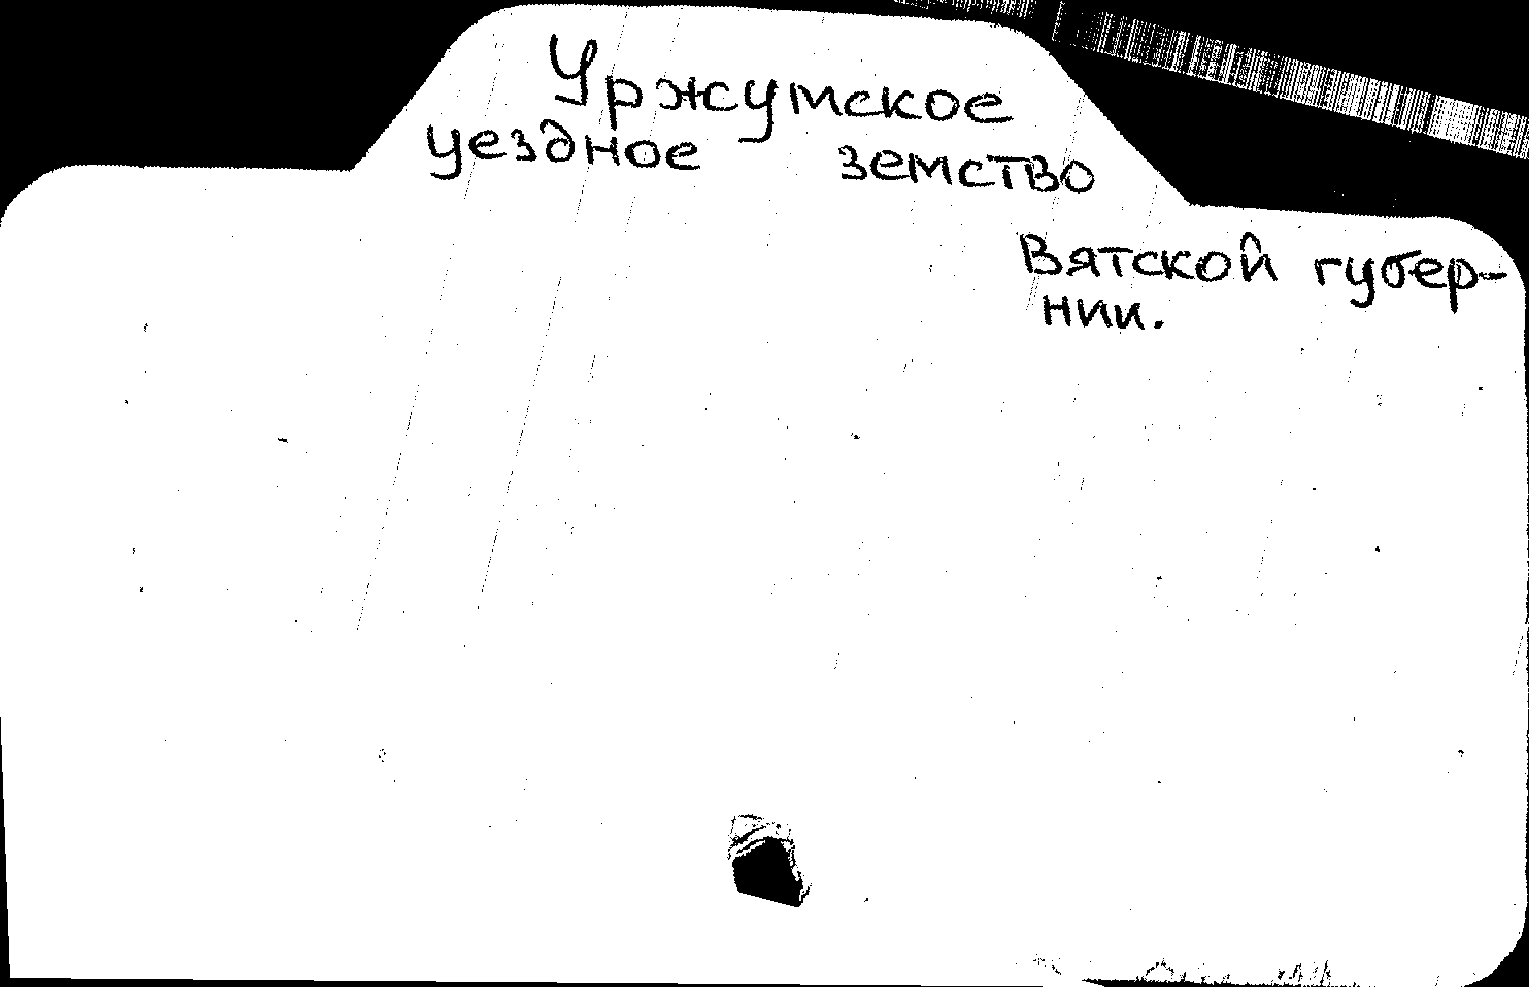 Уржумское
уездное земство
Вятской губер-
нии.